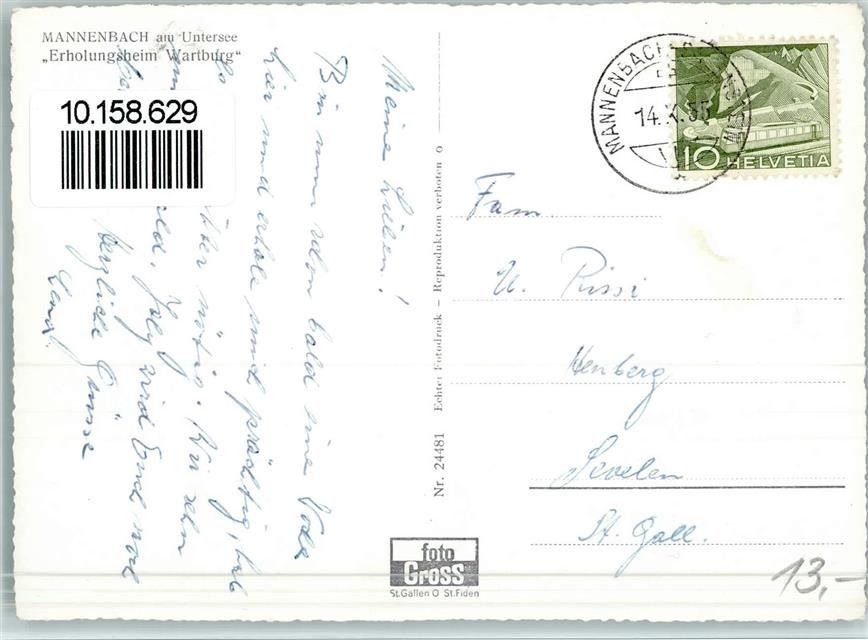 MANNENBACH am Untersee
„Erholungsheim Wartburg"
10.158.629
Meine Lieben!
Bin nun schon bald eine Woche
hier und erhole mich prächtig, hab
es
aber nötig. Wie zehn
bald. Joly wird Euch noch
Herzliche Grüsse
Nr. 24481 Echter Fotodruck – Reproduktion verboten o
foto
Gross
St.Gallen O St.Fiden
MANNENBACH
14.X.55
10 HELVETIA
Fam.
U. Rissi
Henberg
Sevelen
St. Gall.
13,-